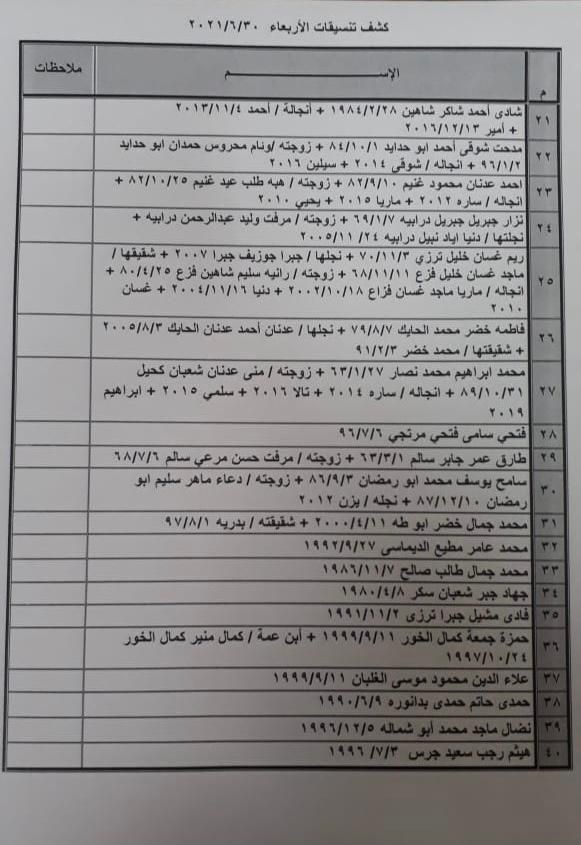 كشف تنسيقات الأربعاء ٢٠٢١/٦/٣٠
م الإســـم ملاحظات
٢١ شادى أحمد شاكر شاهين ١٩٨٤/٢/٢٨ + أنجالة / أحمد ٢٠١٣/١١/٤
+ أمير ٢٠١٦/١٢/١٣
٢٢ مدحت شوقي أحمد ابو حدايد ٨٤/١٠/١ + زوجته /ونام محروس حمدان ابو حدايد
٩٦/١/٢ + انجاله / شوقي ٢٠١٤ + سيلين ٢٠١٦
٢٣ احمد عدنان محمود غنيم ٨٢/٩/١٠ + زوجته / هبه طلب عيد غنيم ٨٢/١٠/٢٥ +
انجاله / ساره ٢٠١٢ + ماريا ٢٠١٥ + يحيي ٢٠١٠
٢٤ نزار جبريل جبريل درابيه ٦٩/١/٧ + زوجته / مرفت وليد عبدالرحمن درابيه +
نجلتها / دنيا اياد نبيل درابيه ٢٤/ ٢٠٠٥/١١
٢٥ ريم غسان خليل ترزي ٧٠/١١/٣ + نجلها / جبرا جوزيف جبرا ٢٠٠٧ + شقيقها /
ماجد غسان خليل فزع ٦٨/١١/١١ + زوجته / رانيه سليم شاهين فزع ٨٠/٤/٢٥ +
انجاله / ماريا ماجد غسان فزاع ٢٠٠٢/١٠/١٨ + دنيا ٢٠٠٤/١١/١٦ + غسان
٢٠١٠
٢٦ فاطمه خضر محمد الحايك ٧٩/٨/٧ + نجلها / عدنان أحمد عدنان الحايك ٢٠٠٥/٨/٣
+ شقيقتها / محمد خضر ٩١/٢/٣
٢٧ محمد ابراهيم محمد نصار ٦٣/١/٢٧ + زوجته / منى عدنان شعبان كحيل
٨٩/١٠/٣١ + انجاله / ساره ٢٠١٤ + تالا ٢٠١٦ + سلمي ٢٠١٥ + ابراهيم
٢٠١٩
٢٨ فتحي سامى فتحي مرتجي ٩٦/٧/٦
٢٩ طارق عمر جابر سالم ٦٣/٣/١ + زوجته / مرفت حسن مرعي سالم ٦٨/٧/٦
٣٠ سامح يوسف محمد ابو رمضان ٨٦/٩/٣ + زوجته / دعاء ماهر سليم ابو
رمضان ٨٧/١٢/١٠ + نجله / يزن ٢٠١٢
٣١ محمد جمال خضر ابو طه ٢٠٠٠/٤/١١ + شقيقته / بدريه ٩٧/٨/١
٣٢ محمد عامر مطيع الديماسى ١٩٩٢/٩/٢٧
٣٣ محمد جمال طالب صالح ١٩٨٦/١١/٧
٣٤ جهاد جبر شعبان سكر ١٩٨٠/٤/٨
٣٥ فادى مشيل جبرا ترزى ١٩٩١/١١/٢
٣٦ حمزة جمعة كمال الخور ١٩٩٩/٩/١١ + أبن عمة / كمال منير كمال الخور
١٩٩٧/١٠/٢٤
٣٧ علاء الدين محمود موسى الغلبان ١٩٩٩/٩/١١
٣٨ حمدى حاتم حمدى بدانوره ١٩٩٠/٦/٩
٣٩ نضال ماجد محمد أبو شماله ١٩٩٦/١٢/٥
٤٠ هيثم رجب سعيد جرس ١٩٩٦ /٧/٣